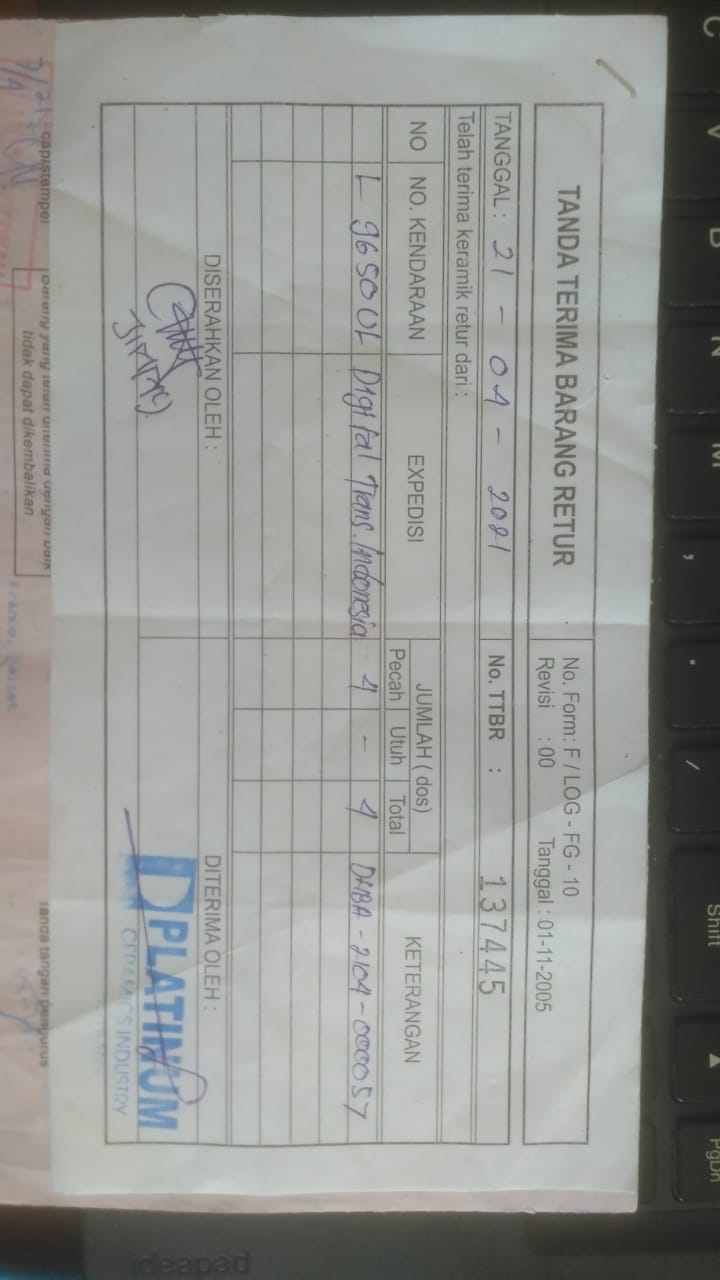 TANDA TERIMA BARANG RETUR
No. Form: F / LOG - FG - 10
Revisi : 00 Tanggal : 01-11-2005
TANGGAL : 21 - 04 - 2021 No. TTBR : 137445
Telah terima keramik retur dari :
NO NO. KENDARAAN EXPEDISI JUMLAH ( dos) KETERANGAN
Pecah Utuh Total
L 9650 UL Digital Trans. Indonesia 4 - 4 DMBA - 2104 - 000057
DISERAHKAN OLEH : DITERIMA OLEH :
PLATINUM
CERAMICS INDUSTRY
cap/stempel
Barang yang telah diterima dengan baik
tidak dapat dikembalikan
Tanda tangan pengurus
C
V
B
N
M
,
.
/
Shift
PgDn
ideapad